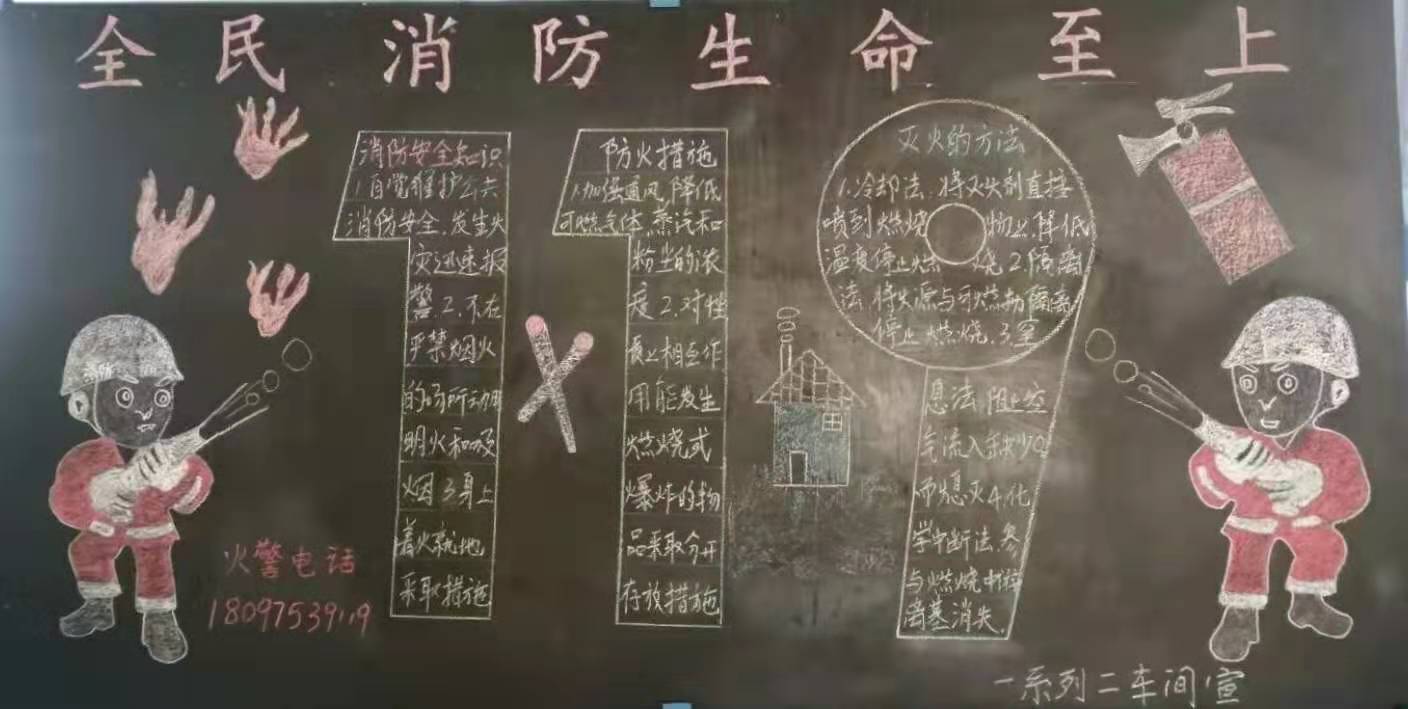 全民消防 生命至上
消防安全知识
1.自觉维护公共
消防安全,发生火
灾迅速报
警.2.不在
严禁烟火
的场所动用
明火和吸
烟3身上
着火就地
采取措施
防火措施
1.加强通风,降低
可燃气体,蒸汽和
粉尘的浓
度2.对性
质上相互作
用能发生
燃烧或
爆炸的物
品采取分开
存放措施
灭火的方法
1.冷却法.将灭火剂直接
喷到燃烧物上,降低
温度停止燃烧2.隔离
法.将火源与可燃物隔离
停止燃烧.3.窒
息法阻止空
气流入缺少O
而熄灭4.化
学中断法.参
与燃烧中游
离基消失.
火警电话
18097539119
一系列二车间宣
消防